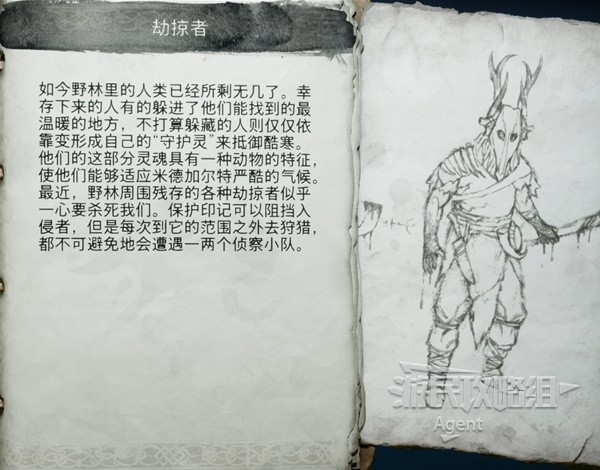 劫掠者
如今野林里的人类已经所剩无几了。幸
存下来的人有的躲进了他们能找到的最
温暖的地方，不打算躲藏的人则仅仅依
靠变形成自己的“守护灵”来抵御酷寒。
他们的这部分灵魂具有一种动物的特征，
使他们能够适应米德加尔特严酷的气候。
最近，野林周围残存的各种劫掠者似乎
一心要杀死我们。保护印记可以阻挡入
侵者，但是每次到它的范围之外去狩猎，
都不可避免地会遭遇一两个侦察小队。
游民攻略组
Agent